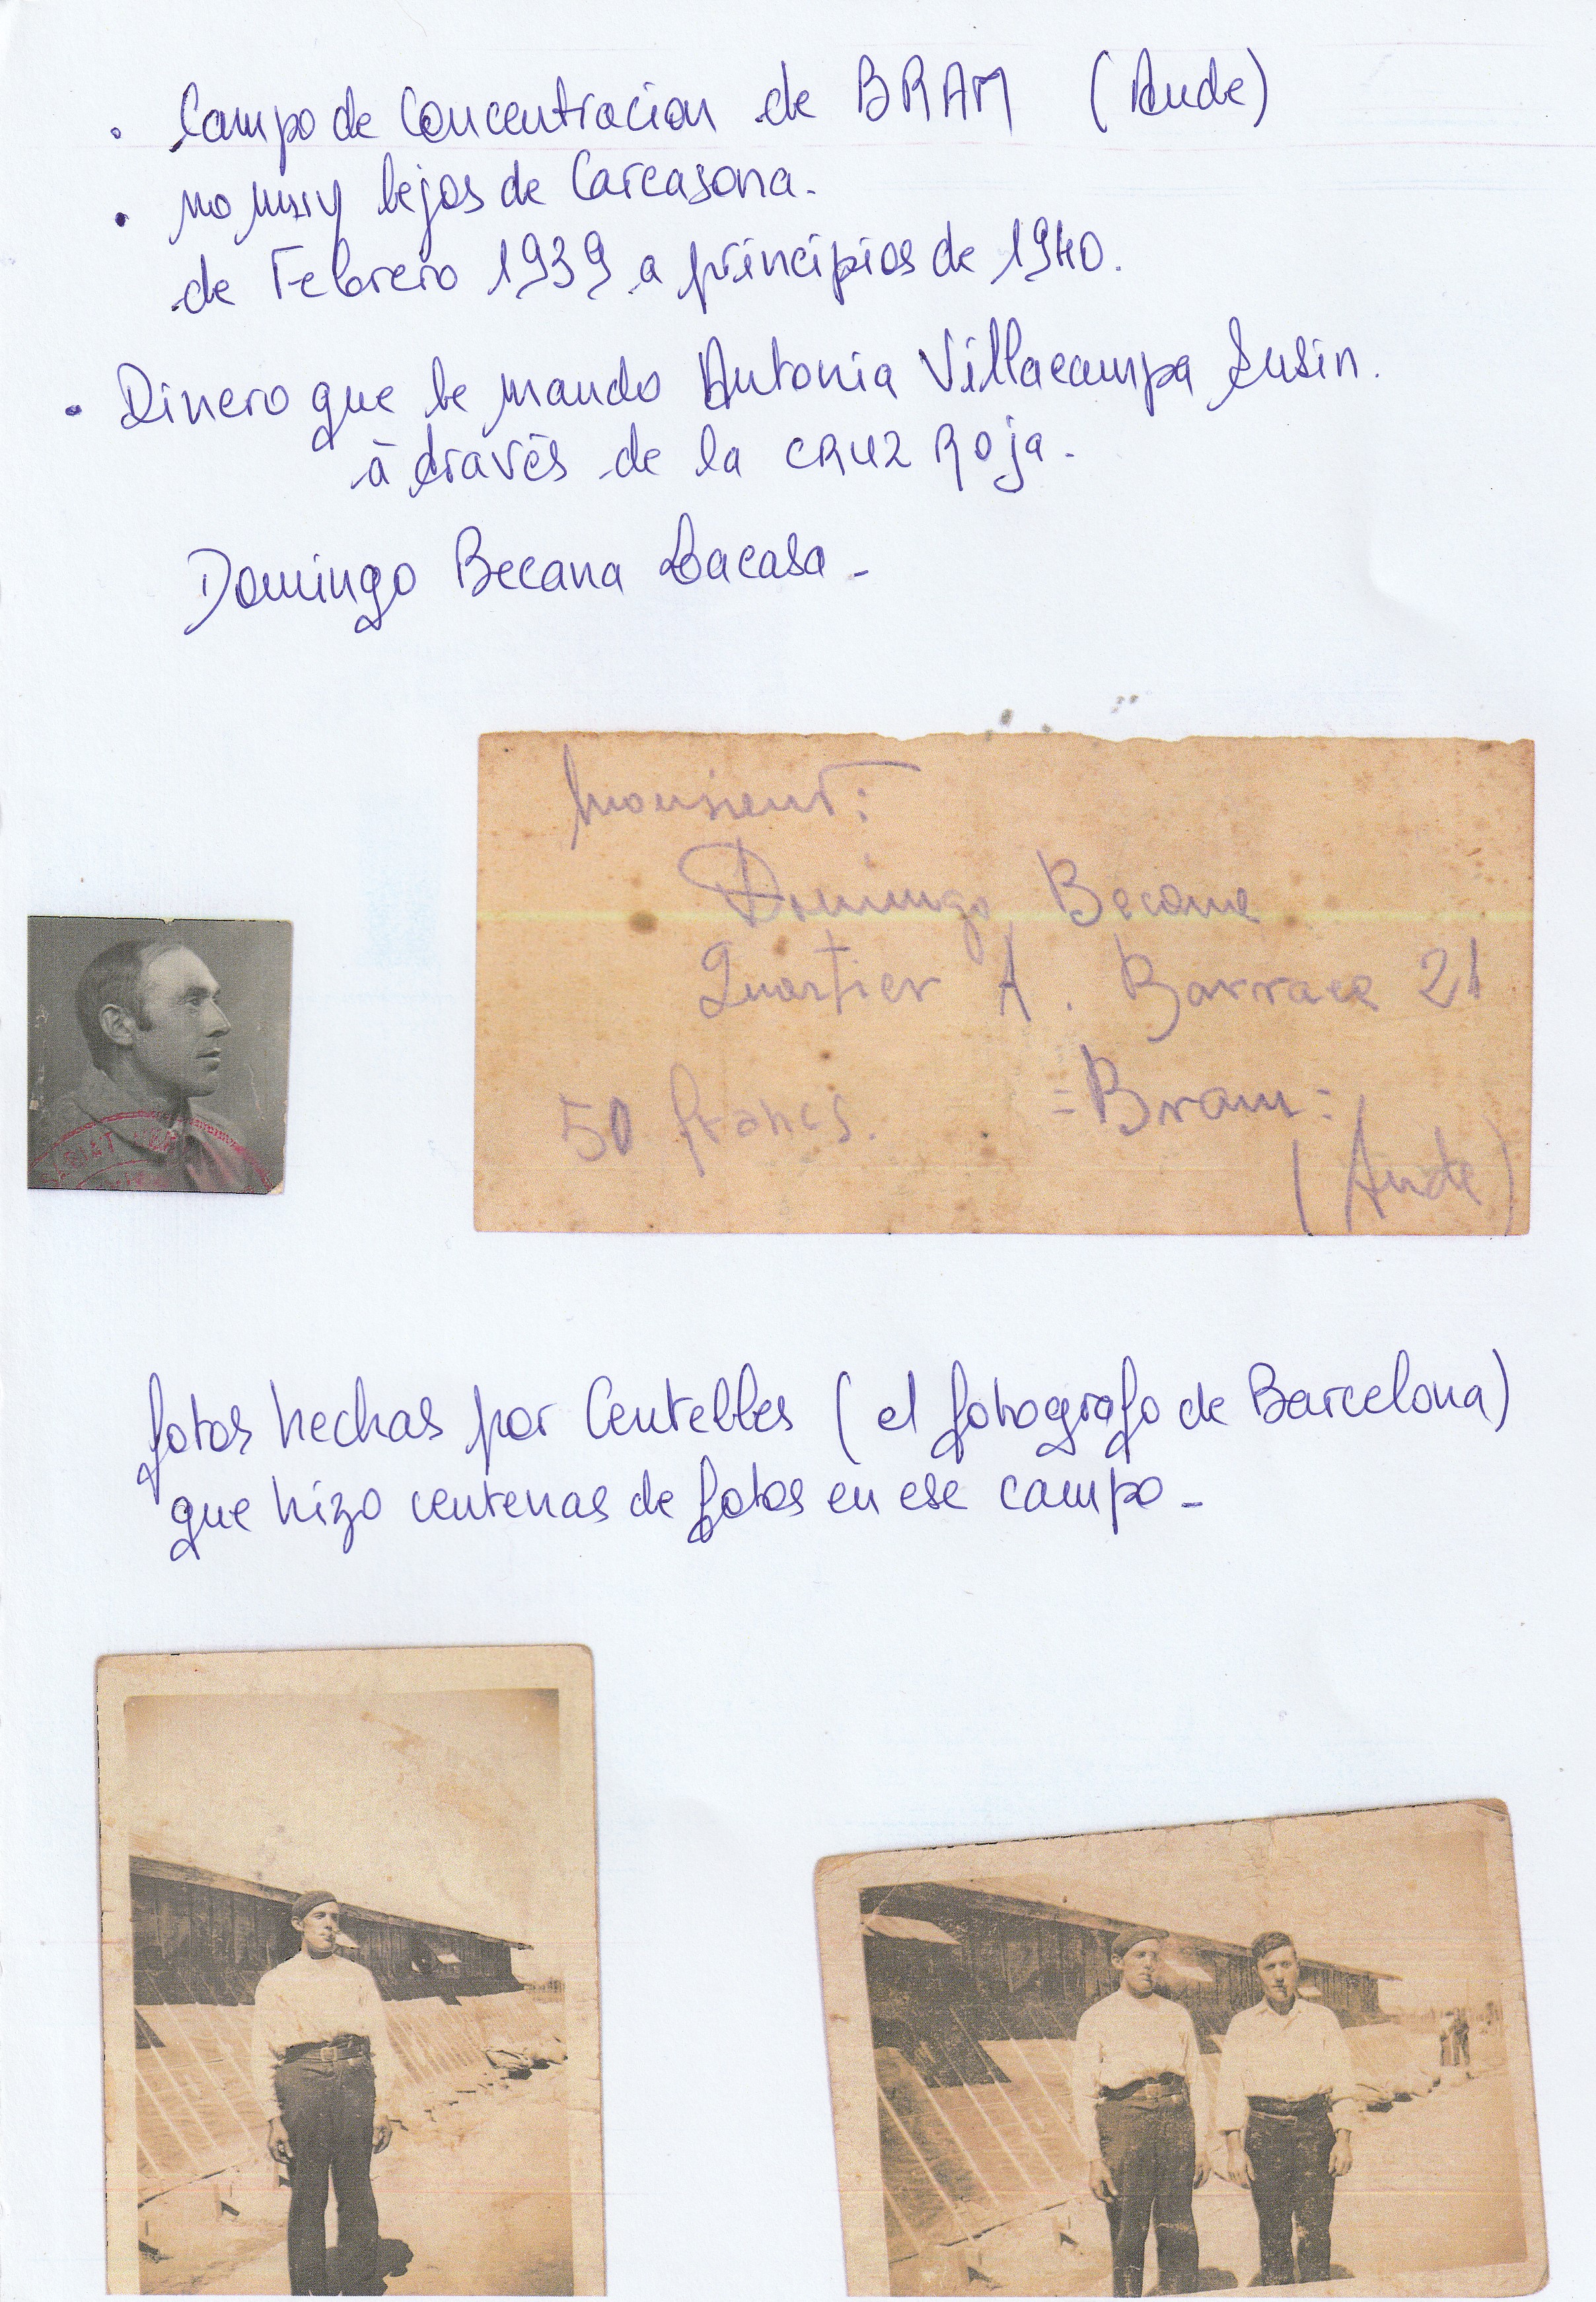 . Campo de Concentracion de BRAM (Aude)
. no muy lejos de Carcasona.
de Febrero 1939 a principios de 1940.
. Dinero que le mando Antonia Villacampa Susin.
à través de la CRUZ Roja.
Domingo Becana Lacasa -
Monsieur:
Domingo Becana
Quartier A. Barrace 21
50 francs. =Bram:
(Aude)
fotos hechas por Centelles (el fotografo de Barcelona)
que hizo centenas de fotos en ese campo -